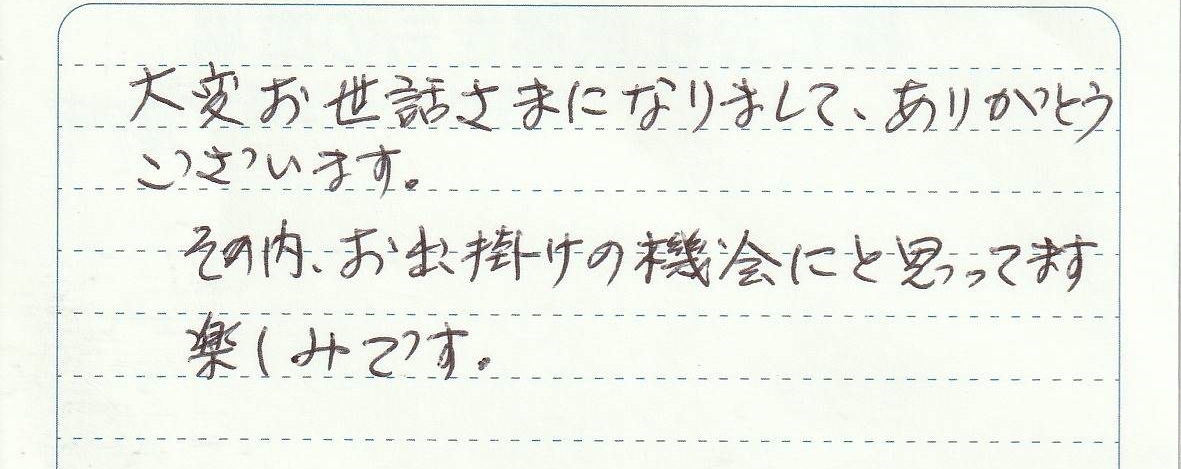 大変お世話さまになりまして、ありがとう
ございます。
その内、お出掛けの機会にと思ってます
楽しみです。